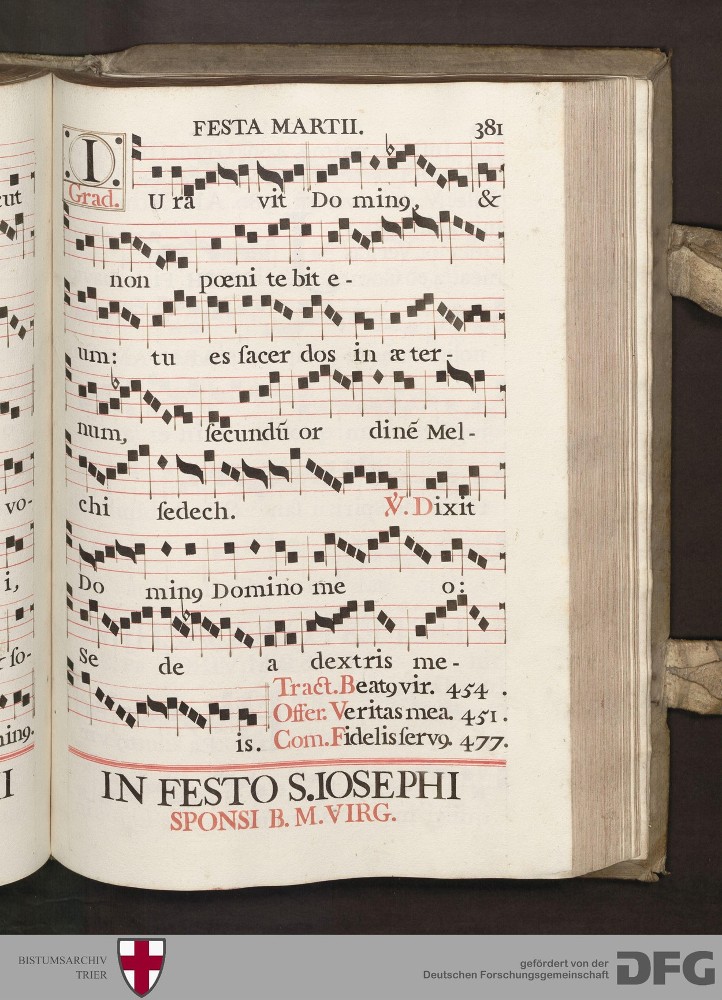 FESTA MARTII. 381
I
Grad. U ra vit Do minꝯ, &
non pœni te bit e -
um: tu es ſacer dos in æ ter -
num, ſecundũ or dinẽ Mel -
chi ſedech. ℣. Dixit
Do minꝯ Domino me o:
Se de a dextris me -
Tract. Beatꝯ vir. 454 .
Offer. Veritas mea. 451 .
is. Com. Fidelis ſervꝯ. 477.
IN FESTO S. IOSEPHI
SPONSI B. M. VIRG.
cut
vo-
i,
ſo-
inꝯ.
I
BISTUMSARCHIV
TRIER
gefördert von der
Deutschen Forschungsgemeinschaft
DFG